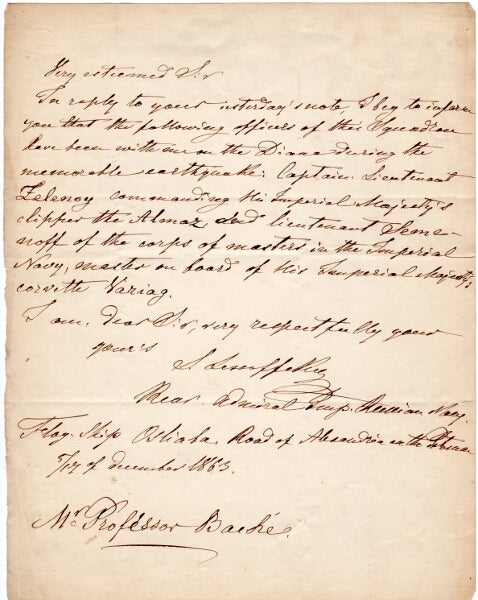 Very esteemed Sir
In reply to your yesterday's note, I beg to inform
you that the following officers of this Squadron
have been with me on the Diana during the
memorable earthquake: Captain Lieutenant
Zelenoy commanding His Imperial Majesty's
clipper the Almaz and lieutenant Seme-
noff of the corps of masters in the Imperial
Navy, master on board of His Imperial Majesty's
corvette Variag.
I am, dear Sir, very respectfully your
your's
S Lessoffsky
Rear Admiral Imp. Russian Navy.
Flag Ship Osliaba. Road of Alexandria on the
of december 1863.
Mr Professor Bache.